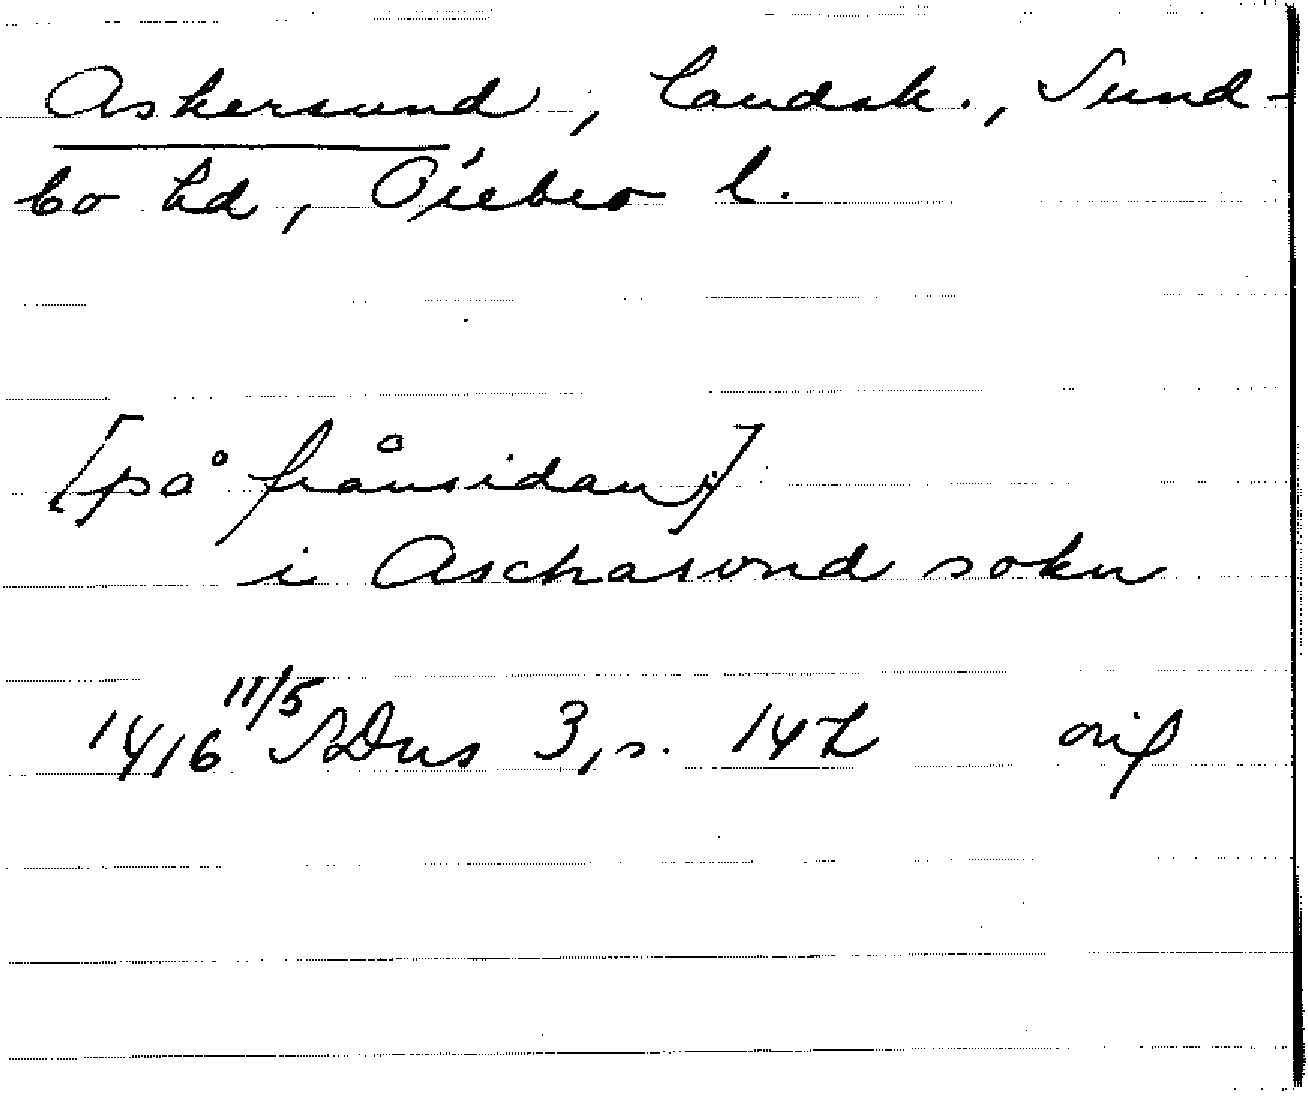 Askersund, landsk., Sund-
bo hd, Örebro l.
[på frånsidan:]
i Aschasund sokn
1416 11/5 SDns 3, s. 142 orig